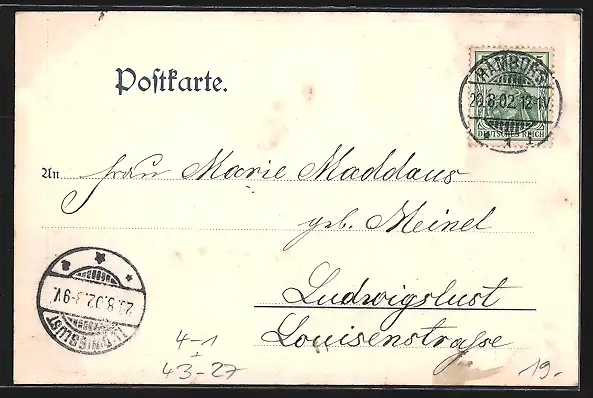 Postkarte.
HAMBURG
28.8.02.12-1V.
1 f.
DEUTSCHES REICH
An Frau Marie Maddaus
geb. Meinel
Ludwigslust
Louisenstraße
LUDWIGSLUST
29.8.02.8-9V.
4-1
43-27
19.-